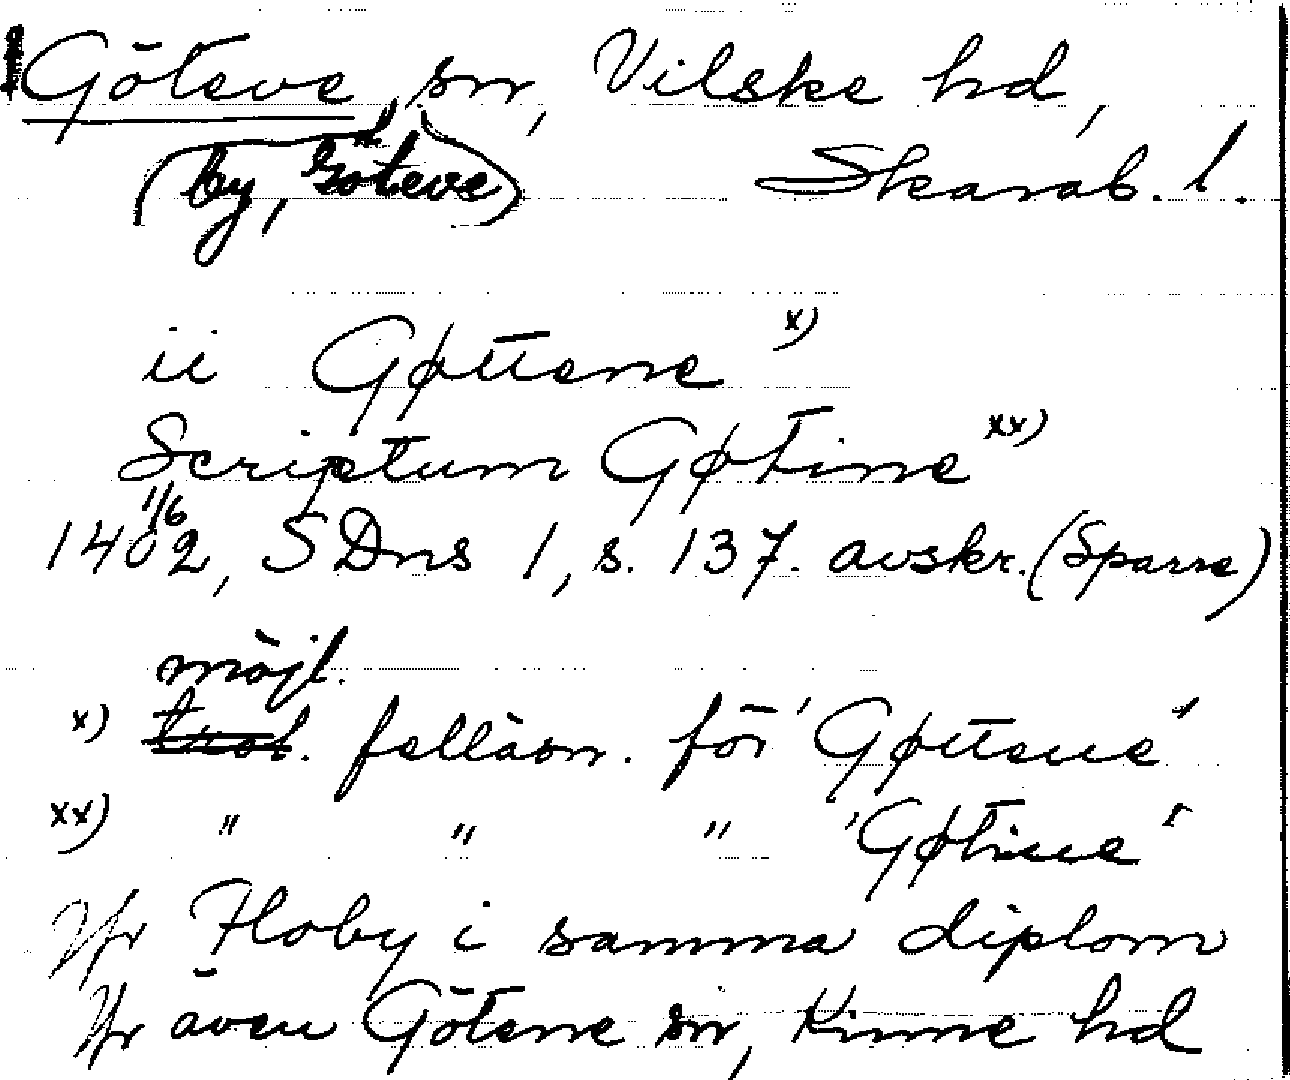 Göteve sn, Vilske hd,
(by, Göteve) Skarab. l.
ii Gøttene x)
Scriptum Gøtine xx)
1402 1/6, SDns 1, s. 137. avskr. (Sparre)
möjl.
x) trol. felläsn. för 'Gøtteue'
xx) " " " 'Gøtiue'
Jfr Floby i samma diplom
Jfr även Götene sn, Kinne hd